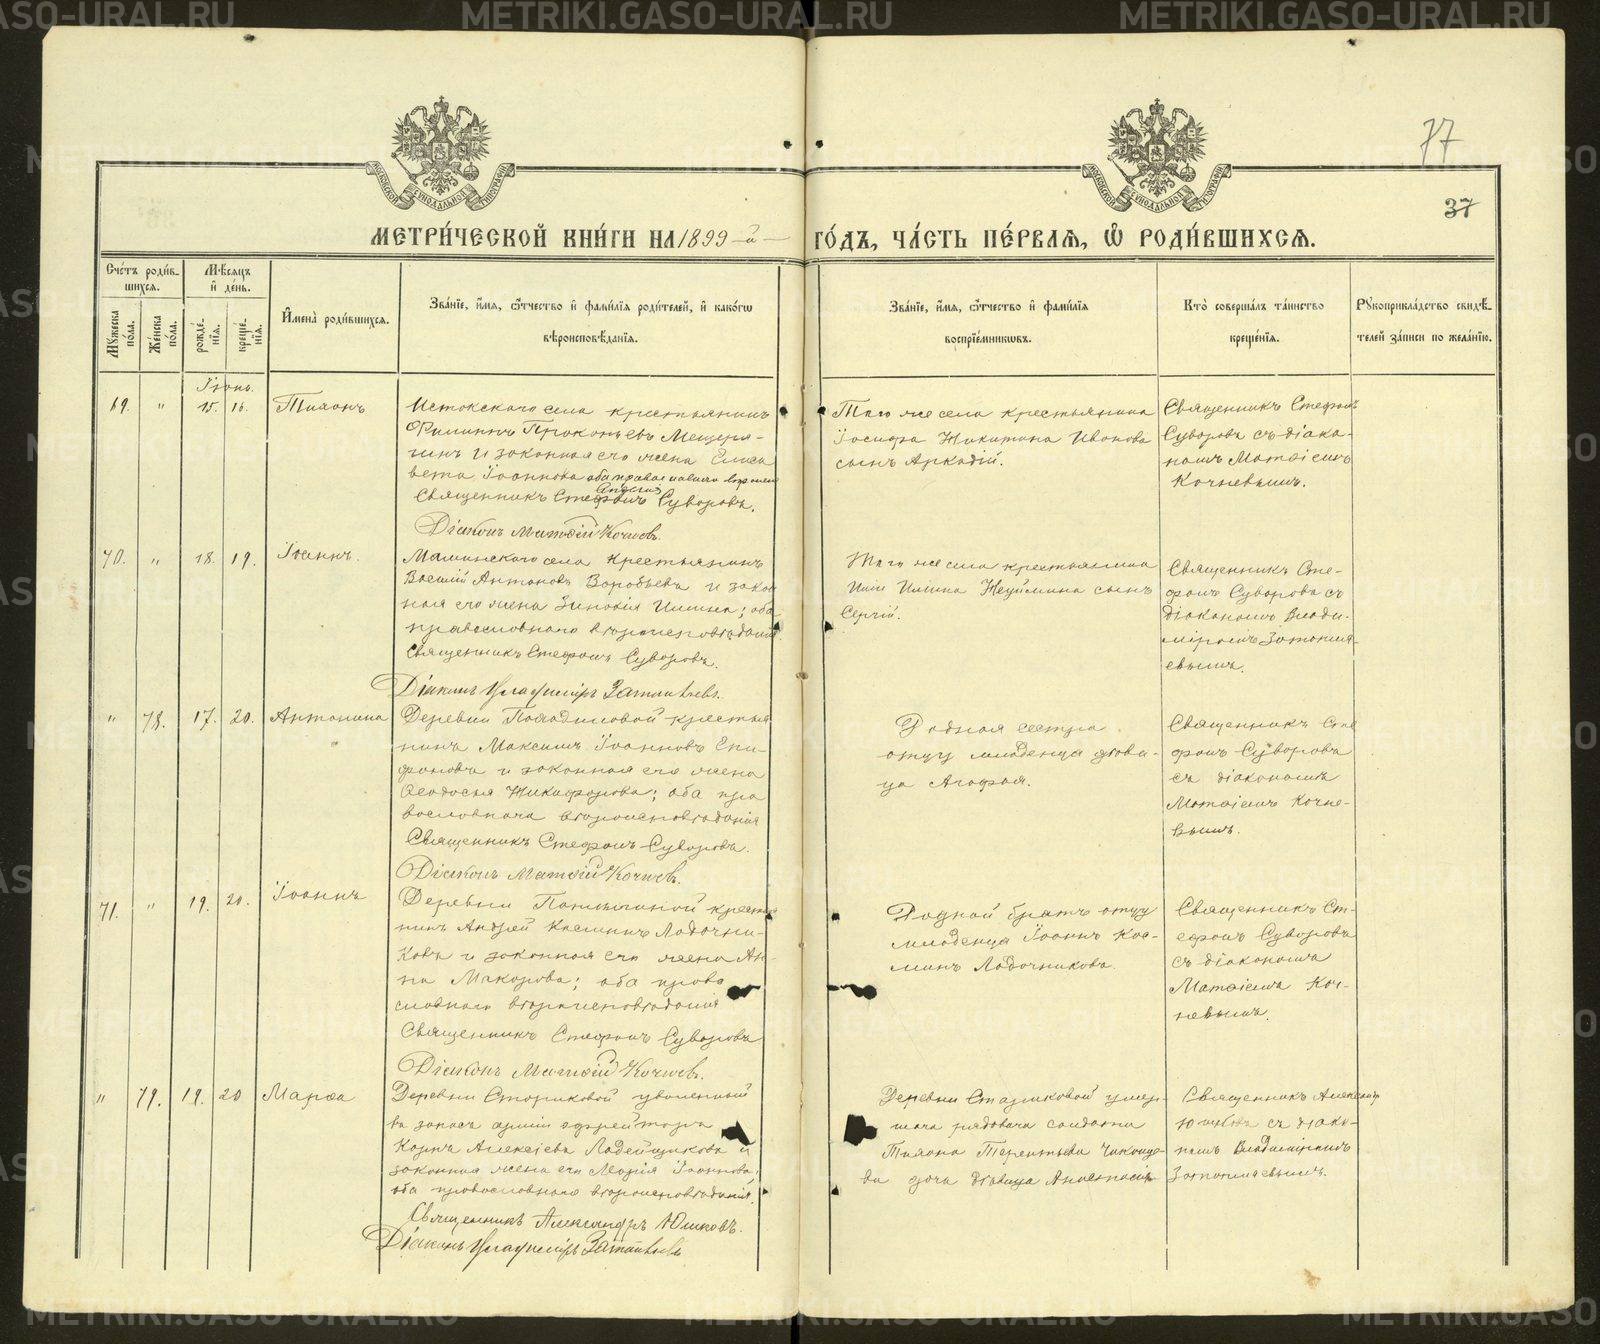 77
37
МЕТРИ́ЧЕСКОЙ КНИ́ГИ НА 1899-й ГО́ДЪ, ЧА́СТЬ ПЕ́РВАЯ, Ѡ РОДИ́ВШИХСЯ.
Сче́тъ роди́вшихся.
Мѣ́сяцъ и де́нь.
Му́жеска по́ла.
Же́нска по́ла.
рожде́нія.
креще́нія.
И̓мена̀ роди́вшихся.
Зва́нїе, и́мя, ѻ́тчество и фами́лїя роди́телей, и како́гѡ
вѣроисповѣ́данїя.
Зва́нїе, и́мя, ѻ́тчество и фами́лїя
воспрїе́мниковъ.
Кто̀ соверша́лъ та́инство
креще́нїя.
Рꙋкоприкла́дство свидѣ́-
телей за́писи по жела́нїю.
Іюнь.
69. " 15. 16. Тихонъ
Истокскаго села крестьянинъ
Филиппъ Прокопьевъ Мещеря-
гинъ и законная его жена Елиса
вета Іоаннова оба православнаго
Священникъ Стефанъ Суворовъ.
Діаконъ Матѳій Кочневъ.
Того же села крестьянина
Іосифа Никитина Иванова
сынъ Аркадій.
Священникъ Стефанъ
Суворовъ съ діако-
номъ Матѳіемъ
Кочневымъ.
70. " 18. 19. Іоаннъ.
Маминскаго села крестьянинъ
Василій Антоновъ Воробьевъ и закон
ная его жена Зиновія Ильина; оба
православнаго вѣроисповѣданія
Священникъ Стефанъ Суворовъ.
Діаконъ Владиміръ
Того же села крестьянина
Ильи Ильина Неуймина сынъ
Сергій.
Священникъ Сте-
фанъ Суворовъ съ
діакономъ Влади-
міромъ
" 78. 17. 20. Антонина
Деревни крестья
нинъ Максимъ Іоанновъ Епи-
фановъ и законная его жена
Ѳеодосья Никифорова; оба пра
вославнаго вѣроисповѣданія
Священникъ Стефанъ Суворовъ.
Діаконъ Матѳій Кочневъ.
Родная сестра
отцу младенца дѣви-
ца Агафья.
Священникъ Сте
фанъ Суворовъ
съ діакономъ
Матѳіемъ Кочне-
вымъ.
71. " 19. 20. Іоаннъ
Деревни крестья
нинъ Андрей Косминъ Лодочни-
ковъ и законная его жена Ан-
на Макарова; оба право
славнаго вѣроисповѣданія
Священникъ Стефанъ Суворовъ
Діаконъ Матѳій Кочневъ.
Родной братъ отцу
младенца Іоаннъ Кос-
минъ Лодочниковъ.
Священникъ Ст-
ефанъ Суворовъ
съ діакономъ
Матѳіемъ Коч-
невымъ.
" 79. 19. 20 Марѳа
Деревни Стариковой уволенный
въ запасъ арміи ефрейторъ
Карпъ Алексіевъ Ладейщиковъ и
законная жена его Марія Іоаннова;
оба православнаго вѣроисповѣданія.
Священникъ Александръ Юшковъ.
Діаконъ Владиміръ
Деревни Стариковой умер-
шаго рядоваго солдата
Тихона Терентьева
ва дочь дѣвица Анастасія
Священникъ Александр
Юшковъ съ діако-
номъ Владиміромъ